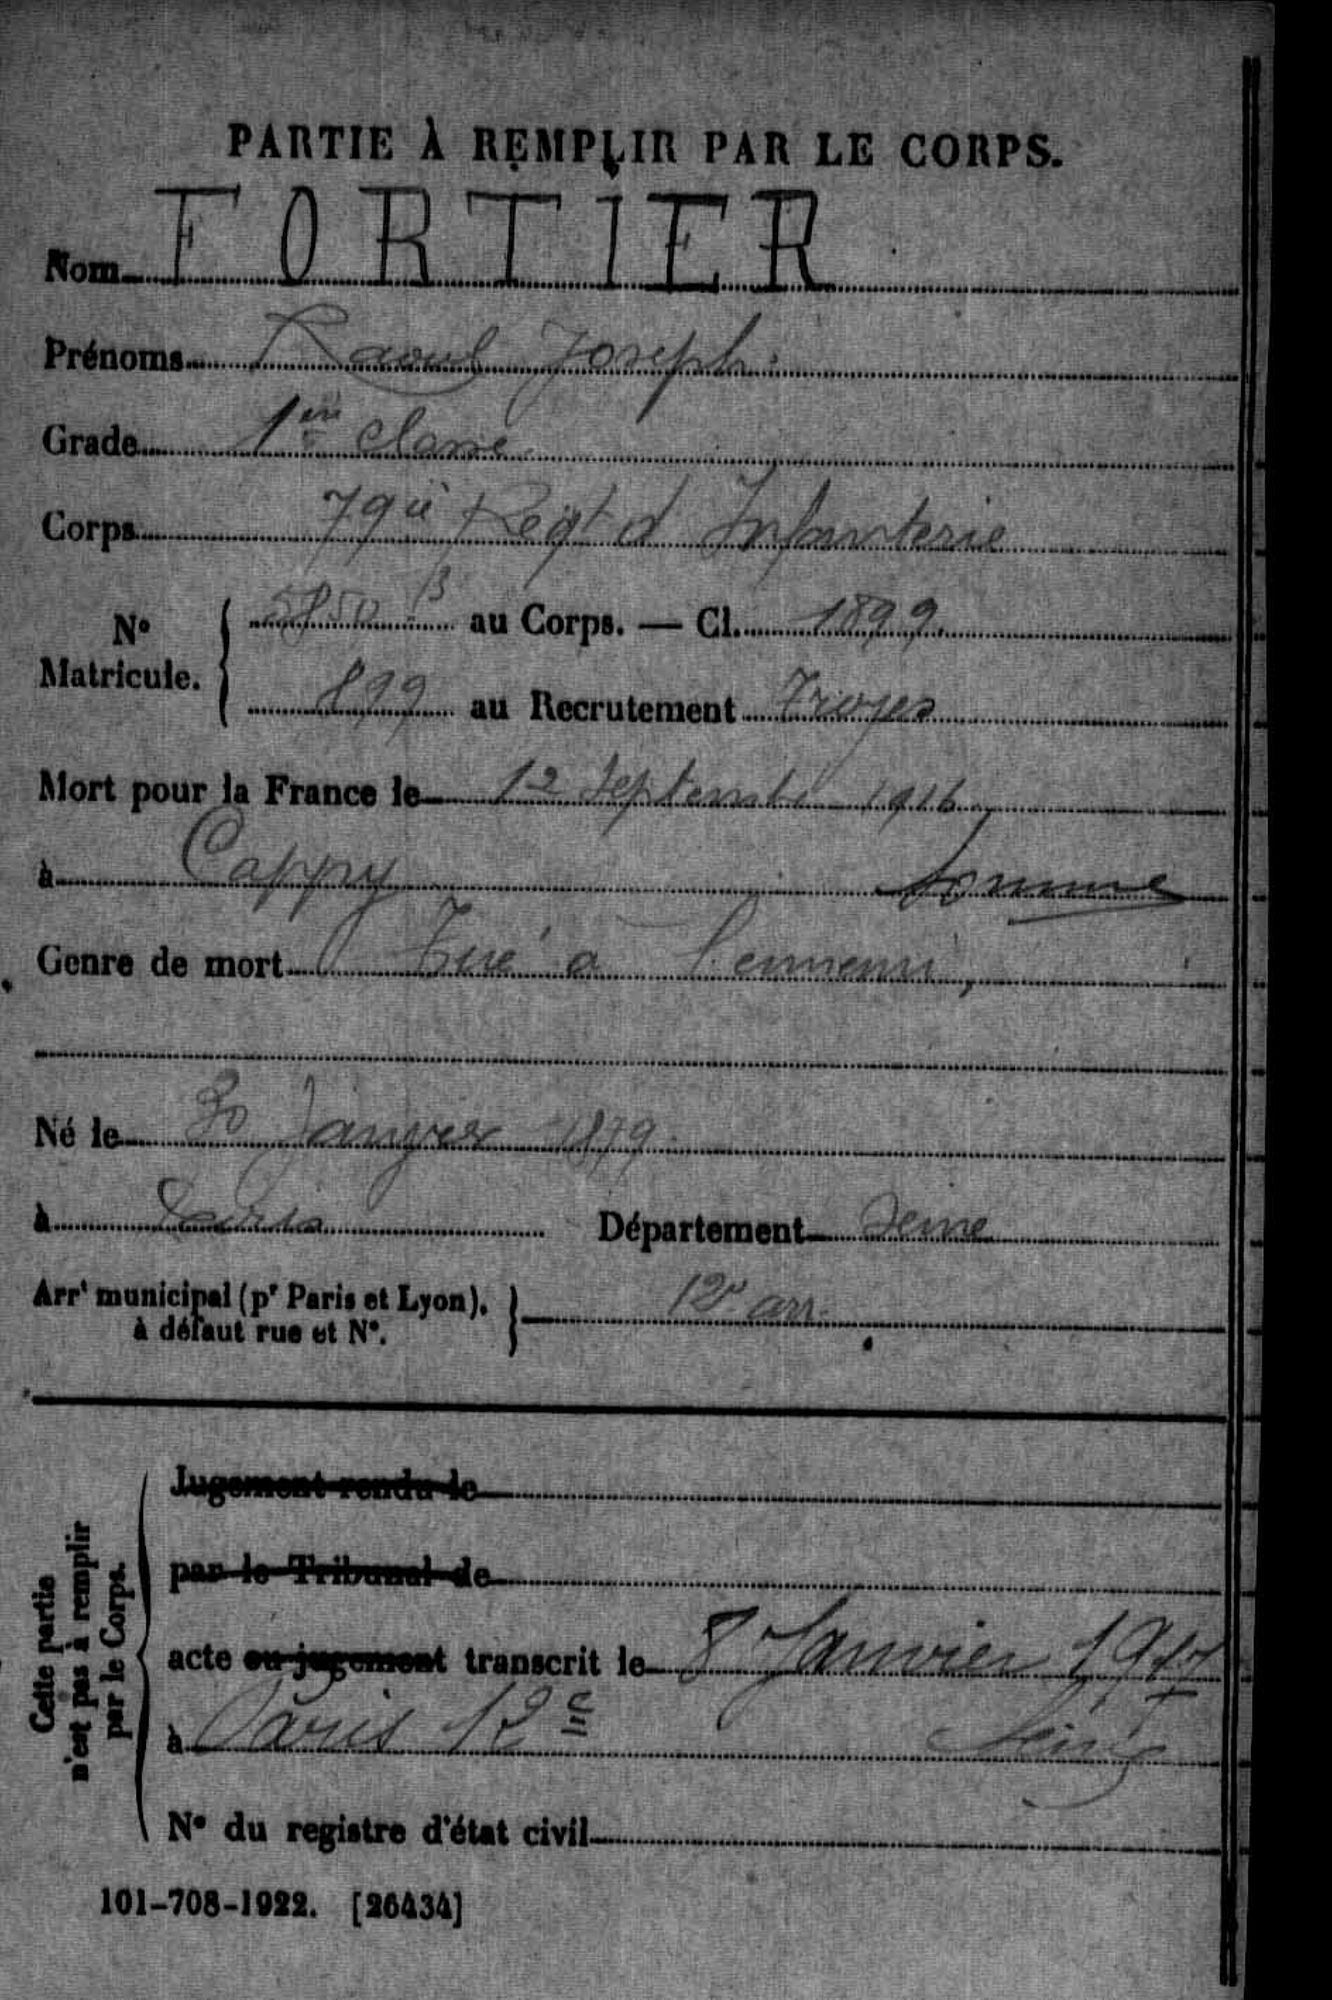 PARTIE À REMPLIR PAR LE CORPS.
Nom FORTIER
Prénoms Raoul Joseph.
Grade 1ère classe
Corps 79è Régt d Infanterie
N° Matricule. 5850 B au Corps. — Cl. 1899.
899 au Recrutement Troyes
Mort pour la France le 12 Septembre 1916
à Cappy Somme
Genre de mort Tué à l'ennemi,
Né le 30 Janvier 1879.
à Paris Département Seine
Arrt municipal (pr Paris et Lyon), à défaut rue et N°. 12e arr.
Cette partie n'est pas à remplir par le Corps.
Jugement rendu le
par le Tribunal de
acte ou jugement transcrit le 8 Janvier 1917
à Paris 12e Seine
N° du registre d'état civil
101-708-1922. [26434]